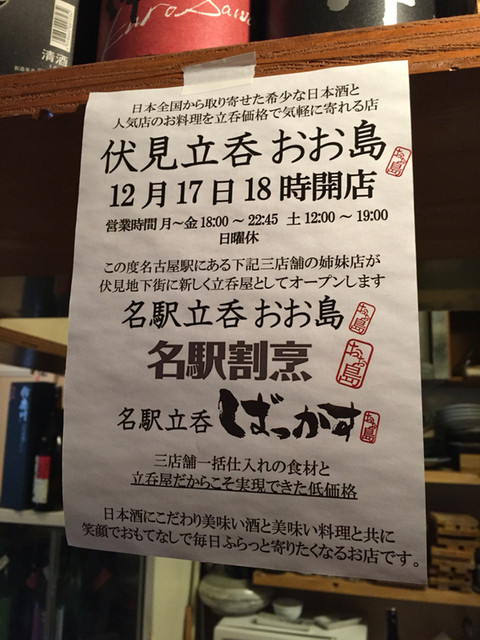 清酒
Kuro Sawa
日本全国から取り寄せた希少な日本酒と
人気店のお料理を立呑価格で気軽に寄れる店
伏見立呑 おお島
おお島
12月17日18時開店
営業時間 月~金 18:00~22:45 土 12:00~19:00
日曜休
この度名古屋駅にある下記三店舗の姉妹店が
伏見地下街に新しく立呑屋としてオープンします
名駅立呑 おお島
おお島
名駅割烹
おお島
名駅立呑 ばっかす
おお島
三店舗一括仕入れの食材と
立呑屋だからこそ実現できた低価格
日本酒にこだわり美味い酒と美味い料理と共に
笑顔でおもてなしで毎日ふらっと寄りたくなるお店です。